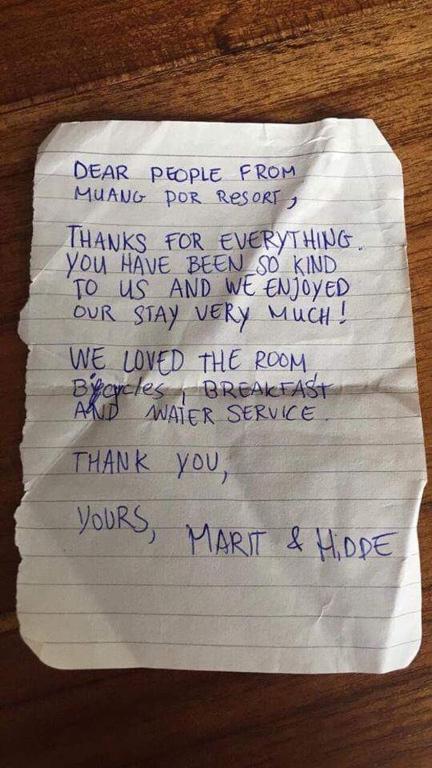 DEAR PEOPLE FROM
MUANG POR RESORT,
THANKS FOR EVERYTHING.
YOU HAVE BEEN SO KIND
TO US AND WE ENJOYED
OUR STAY VERY MUCH!
WE LOVED THE ROOM,
Bicycles, BREAKFAST
AND WATER SERVICE.
THANK YOU,
YOURS, MARIT & HIDDE